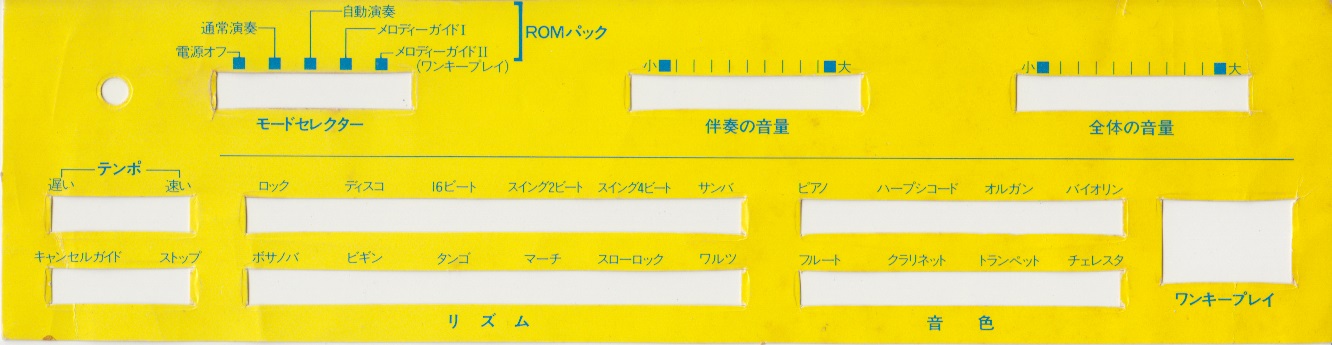 自動演奏
通常演奏
メロディーガイドI
ROMパック
電源オフ
メロディーガイドII
(ワンキープレイ)
小 大
小 大
モードセレクター
伴奏の音量
全体の音量
テンポ
遅い 速い
ロック ディスコ 16ビート スイング2ビート スイング4ビート サンバ
ピアノ ハープシコード オルガン バイオリン
キャンセルガイド ストップ
ボサノバ ビギン タンゴ マーチ スローロック ワルツ
フルート クラリネット トランペット チェレスタ
ワンキープレイ
リズム
音色